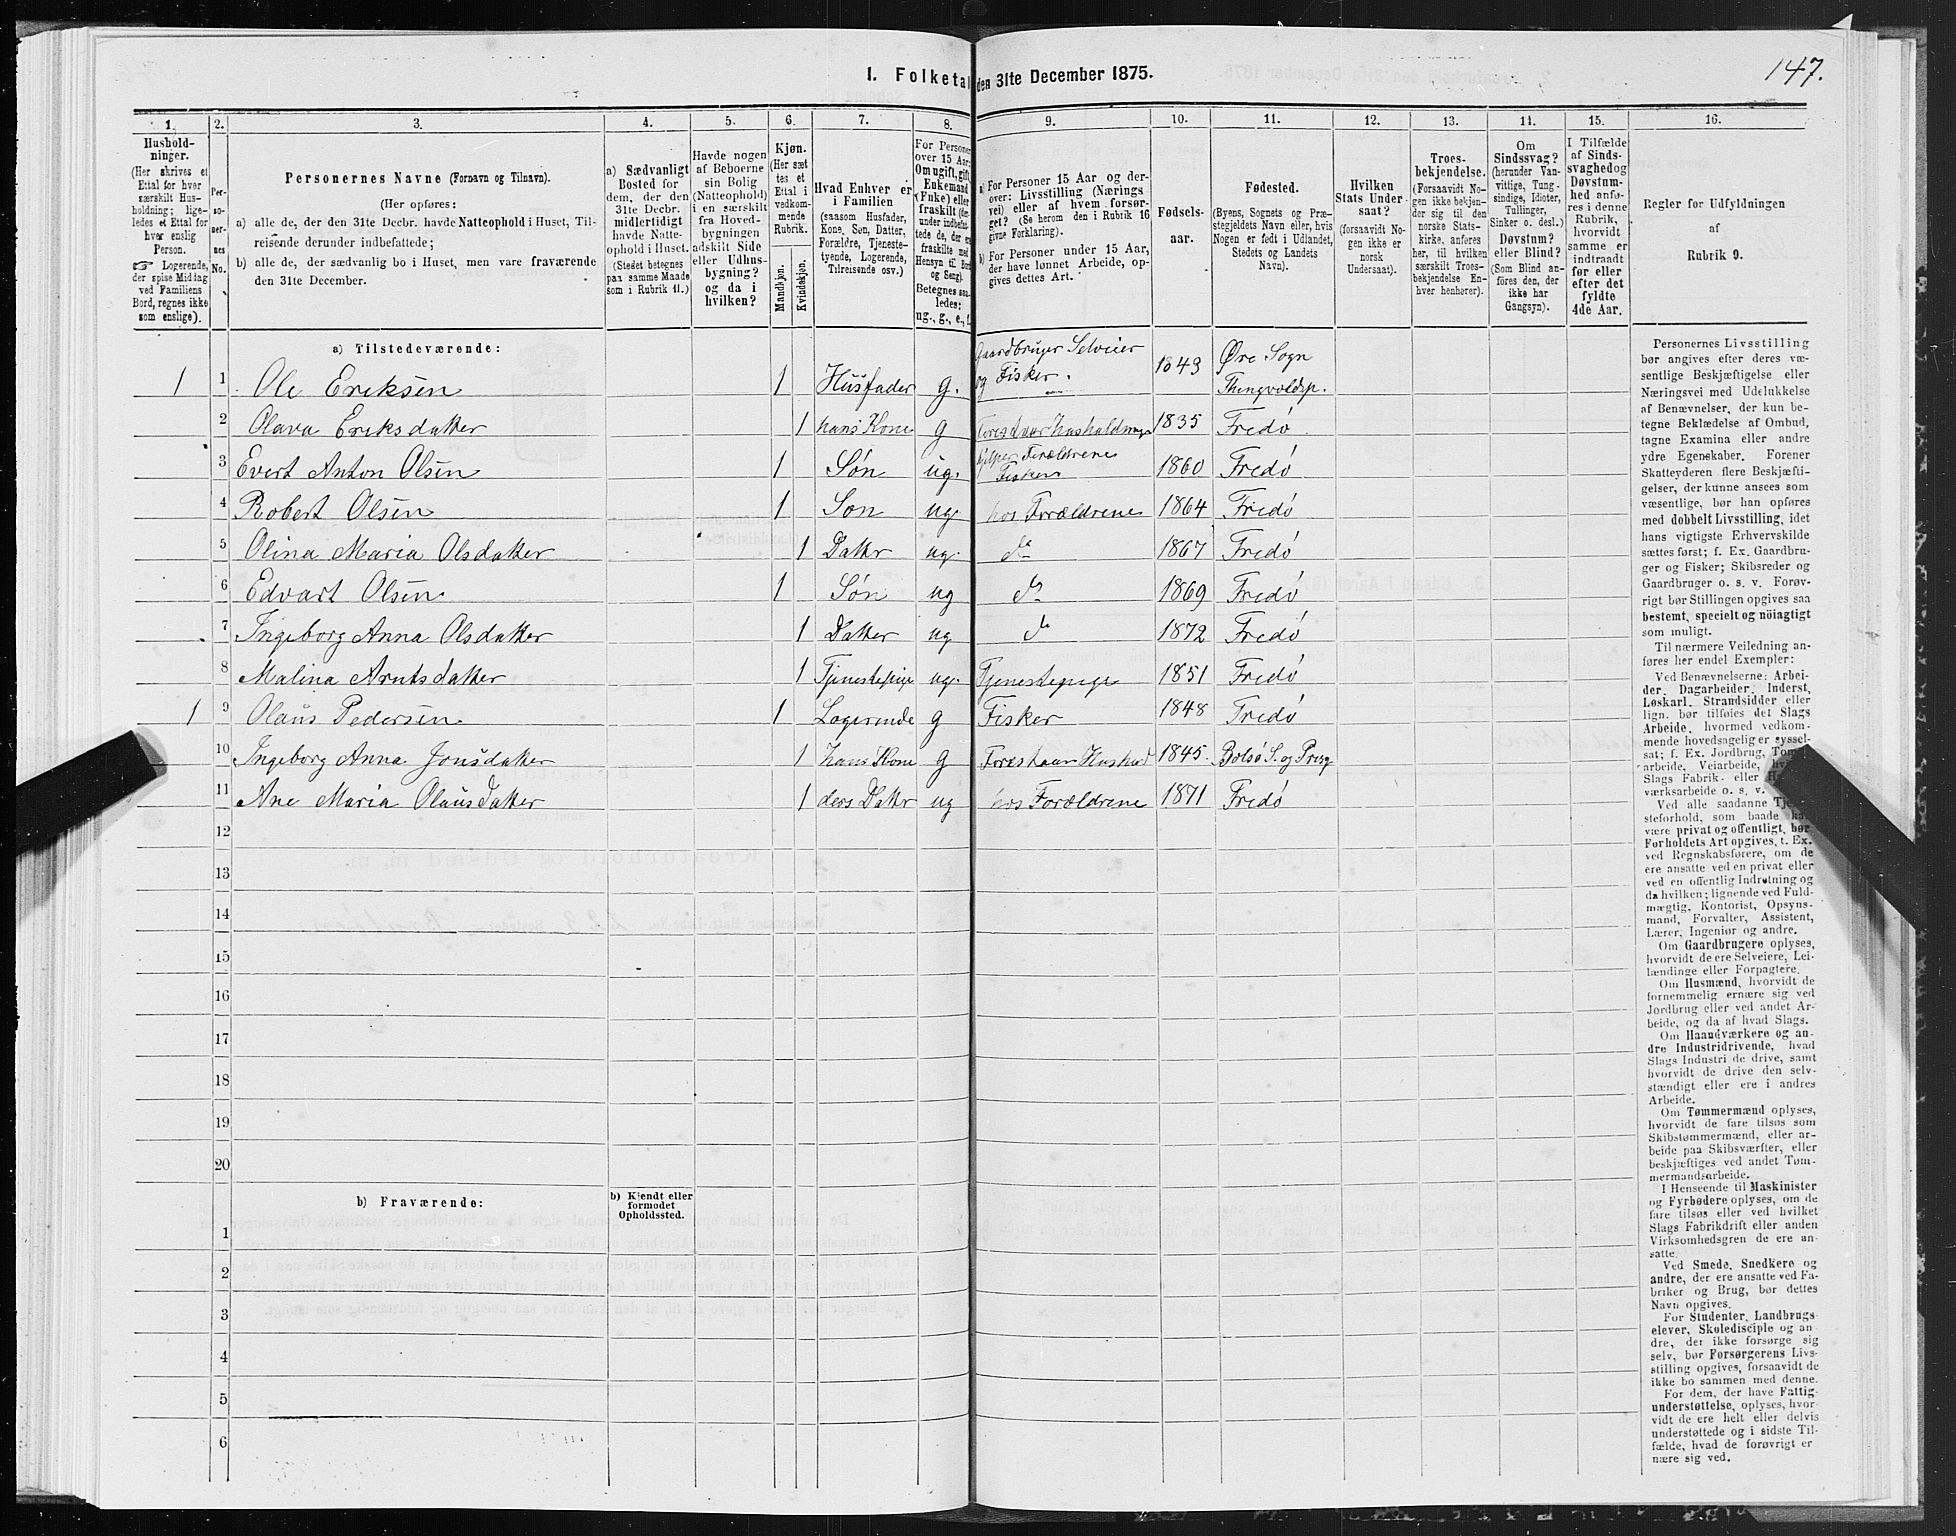 147.
I. Folketal den 31te December 1875.
1. 2. 3. 4. 5. 6. 7. 8. 9. 10. 11. 12. 13. 14. 15. 16.
Hushold-
ninger.
(Her skrives et
Ettal for hver
særskilt Hus-
holdning; lige-
ledes et Ettal for
hver enslig
Person.
☞ Logerende,
der spise Middag
ved Familiens
Bord, regnes ikke
som enslige).
Per-
so-
ner-
nes
No.
Personernes Navne (Fornavn og Tilnavn).
(Her opføres:
a) alle de, der den 31te Decbr. havde Natteophold i Huset, Til-
reisende derunder indbefattede;
b) alle de, der sædvanlig bo i Huset, men vare fraværende
den 31te December.
a) Sædvanligt
Bosted for
dem, der den
31te Decbr.
midlertidigt
havde Natte-
ophold i Huset.
(Stedet betegnes
paa samme Maade
som i Rubrik 11.)
Havde nogen
af Beboerne
sin Bolig
(Natteophold)
i en særskilt
fra Hoved-
bygningen
adskilt Side
eller Udhus-
bygning?
og da i
hvilken?
Kjøn.
(Her sæt
tes et
Ettal i
vedkom-
mende
Rubrik.
Mandkjøn.
Kvindekjøn.
Hvad Enhver er
i Familien
(saasom Husfader,
Kone, Søn, Datter,
Forældre, Tjeneste-
tyende, Logerende,
Tilreisende osv.)
For Personer
over 15 Aar:
Om ugift, gift,
Enkemand
(Enke) eller
fraskilt
Betegnes saa-
ledes:
ug., g., e., f.
a) For Personer 15 Aar og der-
over: Livsstilling (Nærings
vei) eller af hvem forsør-
get? (Se herom den i Rubrik 16
givne Forklaring).
b) For Personer under 15 Aar,
der have lønnet Arbeide, op-
gives dettes Art.
Fødsels-
aar.
Fødested.
(Byens, Sognets og Præ-
stegjeldets Navn eller, hvis
Nogen er født i Udlandet,
Stedets og Landets
Navn).
Hvilken
Stats Under-
saat?
(forsaavidt No-
gen ikke er
norsk
Undersaat).
Troes-
bekjendelse.
(Forsaavidt No-
gen ikke bekjen-
der sig til den
norske Stats-
kirke, anføres
her, til hvilken
særskilt Troes-
bekjendelse En-
hver henhører).
Om
Sindssvag?
(herunder Van-
vittige, Tung-
sindige, Idioter,
Tullinger,
Sinker o. desl.)
Døvstum?
eller Blind?
(Som Blind an-
føres den, der
ikke har
Gangsyn).
I Tilfælde
af Sinds-
svaghed og
Døvstum-
hed anfø-
res i denne
Rubrik,
hvorvidt
samme er
indtraadt
før eller
efter det
fyldte
4de Aar.
Regler for Udfyldningen
af
Rubrik 9.
a) Tilstedeværende:
1 1 Ole Eriksen 1 Husfader g. Gaardbruger Selveier og Fisker. 1843 Øre Sogn Thingvoldsp.
2 Olava Eriksdatter 1 hans Kone g 1835 Fredø
3 Evert Anton Olsen 1 Søn ug. hjelper Forældrene Fisker 1860 Fredø
4 Robert Olsen 1 Søn ug hos Forældrene 1864 Fredø
5 Olina Maria Olsdatter 1 Dattr ug. do 1867 Fredø
6 Edvart Olsen 1 Søn ug do 1869 Fredø
7 Ingeborg Anna Olsdatter 1 Datter ug do 1872 Fredø
8 Malina Arntsdatter 1 Tjenestepige ug. Tjenestepige 1851 Fredø
1 9 Olaus Pedersen 1 Logerende g Fisker 1848 Fredø
10 Ingeborg Anna Jonsdatter 1 hans Kone g Forestaar Hushold 1845. Bolsø S. og Præg
11 Ane Maria Olausdatter 1 ders Dattr ug hos Forældrene 1871 Fredø
12
13
14
15
16
17
18
19
20
b) Fraværende:
b) Kjendt eller
formodet
Opholdssted.
1
2
3
4
5
6
Personernes Livsstilling
bør angives efter deres væ-
sentlige Beskjæftigelse eller
Næringsvei med Udelukkelse
af Benævnelser, der kun be-
tegne Beklædelse af Ombud,
tagne Examina eller andre
ydre Egenskaber. Forener
Skatteyderen flere Beskjæfti-
gelser, der kunne ansees som
væsentlige, bør han opføres
med dobbelt Livsstilling, idet
hans vigtigste Erhvervskilde
sættes først; f. Ex. Gaardbru-
ger og Fisker; Skibsreder og
Gaardbruger o. s. v. Forøv-
rigt bør Stillingen opgives saa
bestemt, specielt og nöiagtigt
som muligt.
Til nærmere Veiledning an-
føres her endel Exempler:
Ved Benævnelserne: Arbei-
der, Dagarbeider, Inderst,
Løskarl, Strandsidder eller
lign. bør tilføies det Slags
Arbeide, hvormed vedkom-
mende hovedsagelig er syssel-
sat; f. Ex. Jordbrug,
arbeide, Veiarbeide,
Slags Fabrik- eller
værksarbeide o. s. v.
Ved alle saadanne
steforhold, som baade
være privat og offentligt, bør
Forholdets Art opgives, t. Ex.
ved Regnskabsførere, om de
ere ansatte ved en privat eller
ved en offentlig Indretning og
da hvilken; lignende ved Fuld-
mægtig, Kontorist, Opsyns-
mand, Forvalter, Assistent,
Lærer, Ingeniør og andre.
Om Gaardbrugere oplyses,
hvorvidt de ere Selveiere, Lei-
lændinge eller Forpagtere.
Om Husmænd, hvorvidt de
fornemmelig ernære sig ved
Jordbrug eller ved andet Ar-
beide, og da af hvad Slags.
Om Haandværkere og an-
dre Industridrivende, hvad
Slags Industri de drive, samt
hvorvidt de drive den selv-
stændigt eller ere i andres
Arbeide.
Om Tømmermænd oplyses,
hvorvidt de fare tilsøs som
Skibstømmermænd, eller ar-
beide paa Skibsværfter, eller
beskjæftiges ved andet Tøm-
mermandsarbeide.
I Henseende til Maskinister
og Fyrbødere oplyses, om de
fare tilsøs eller ved hvilket
Slags Fabrikdrift eller anden
Virksomhedsgren de ere an-
satte.
Ved Smede, Snedkere og
andre, der ere ansatte ved Fa-
briker og Brug, bør dettes
Navn opgives.
For Studenter, Landbrugs-
elever, Skoledisciple og an-
dre, der ikke forsørge sig
selv, bør Forsørgerens Livs-
stilling opgives, forsaavidt de
ikke bo sammen med denne.
For dem, der have Fattig-
understøttelse, oplyses, hvor-
vidt de ere helt eller delvis
understøttede og i sidste Til-
fælde, hvad de forøvrigt er
nære sig ved.